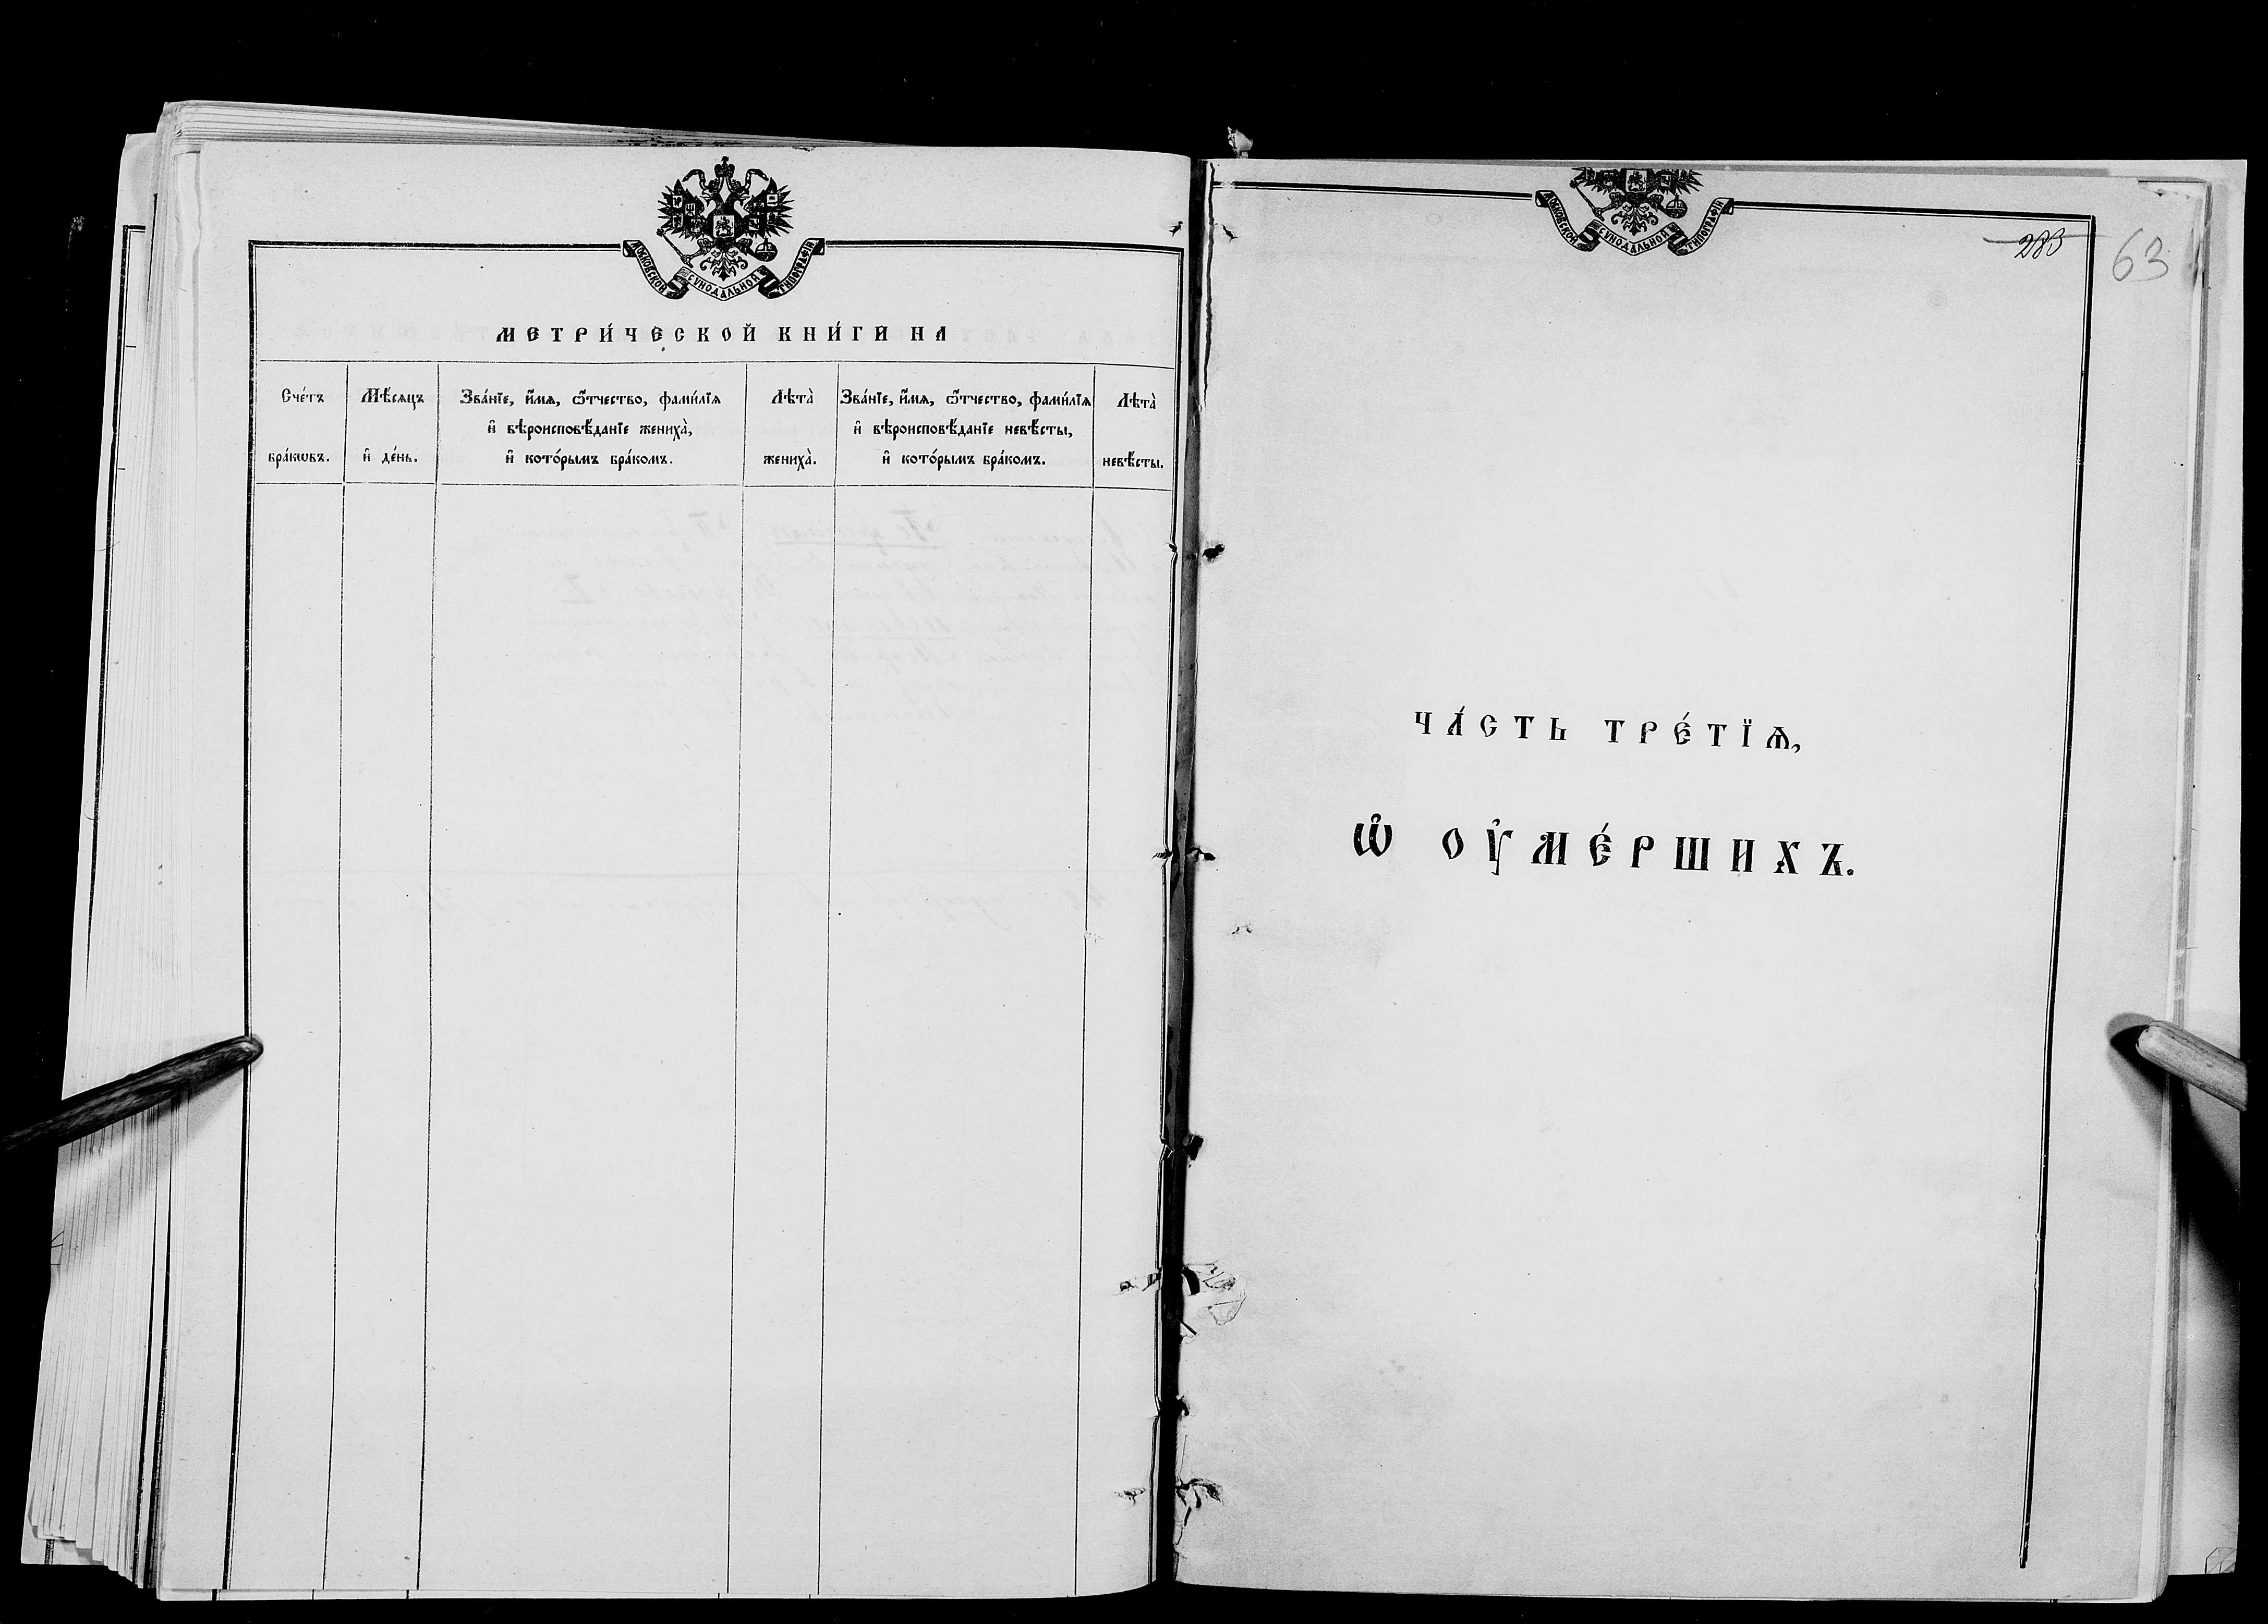 МОСКОВСКОЙ СѴНОДАЛЬНОЙ ТИПОГРАФІИ
МЕТРИ́ЧЕСКОЙ КНИ́ГИ НА
Сче́тъ бра́кѡвъ.
Мѣ́сѧцъ и҆ де́нь.
Зва́нїе, и҆́мѧ, ѻ҆́тчество, фами́лїѧ
и҆ вѣроисповѣ́данїе жениха̀,
и҆ кото́рымъ бра́комъ.
Лѣта̀ жениха̀.
Зва́нїе, и҆́мѧ, ѻ҆́тчество, фами́лїѧ
и҆ вѣроисповѣ́данїе невѣ́сты,
и҆ кото́рымъ бра́комъ.
Лѣта̀ невѣ́сты.
МОСКОВСКОЙ СѴНОДАЛЬНОЙ ТИПОГРАФІИ
283
63
ЧА́СТЬ ТРЕ́ТЇѦ,
Ѡ҆ ОУ҆МЕ́РШИХЪ.